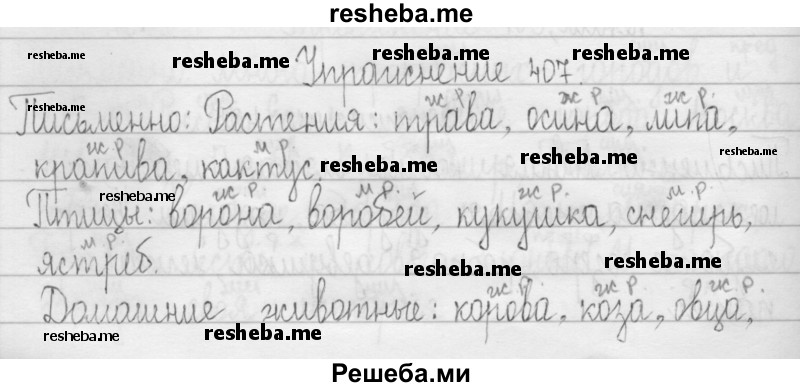 resheba.me
resheba.me resheba.me resheba.me resheba.me
Упражнение 407
resheba.me
ж.р. ж.р. ж.р.
Письменно: Растения: трава, осина, липа,
ж.р. м.р.
крапива, кактус. resheba.me resheba.me resheba.me
resheba.me ж.р. м.р. ж.р. м.р.
Птицы: ворона, воробей, кукушка, снегирь,
м.р.
ястреб. resheba.me resheba.me
ж.р. ж.р. ж.р.
Домашние животные: корова, коза, овца,
resheba.me resheba.me resheba.me resheba.me
Решеба.ми